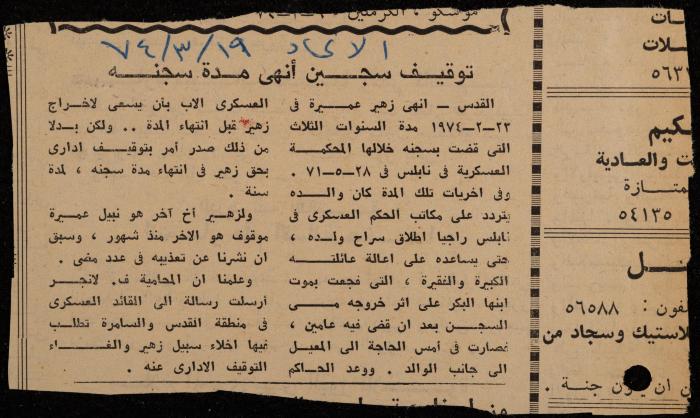 موسكو ، الكرملين
الاتحاد ٧٤/٣/١٩
توقيف سجين أنهى مدة سجنه
القدس ــ انهى زهير عميرة فى
٢٣–٢–١٩٧٤ مدة السنوات الثلاث
التى قضت بسجنه خلالها المحكمة
العسكرية فى نابلس فى ٢٨–٥–٧١ .
وفى اخريات تلك المدة كان والده
يتردد على مكاتب الحكم العسكرى فى
نابلس راجيا اطلاق سراح ولده ،
حتى يساعده على اعالة عائلته
الكبيرة والفقيرة ، التى فجعت بموت
ابنها البكر على اثر خروجه مــى
السجــن بعد ان قضى فيه عامين ،
فصارت فى أمس الحاجة الى المعيل
الى جانب الوالد . ووعد الحاكم
العسكرى الاب بأن يسعى لاخراج
زهير قبل انتهاء المدة .. ولكن بدلا
من ذلك صدر أمر بتوقيــف ادارى
بحق زهير فى انتهاء مدة سجنه ، لمدة
سنة .
ولزهــير أخ آخر هو نبيل عميرة
موقوف هو الاخر منذ شهور ، وسبق
ان نشرنا عن تعذيبه فى عدد مضى .
وعلمنا ان المحامية ف. لانجــر
أرسلت رسالة الى القائد العسكرى
فى منطقة القدس والسامرة تطلــب
فيها اخلاء سبيل زهير والغــــاء
التوقيف الادارى عنه .
ـات
ـلات
٥٦٣
ـكيم
ـت والعادية
ـمتازة
٥٤١٣٥
ـل
ـفون : ٥٦٥٨٨
ـلاستيك وسجاد من
ن ان يكون جنة .